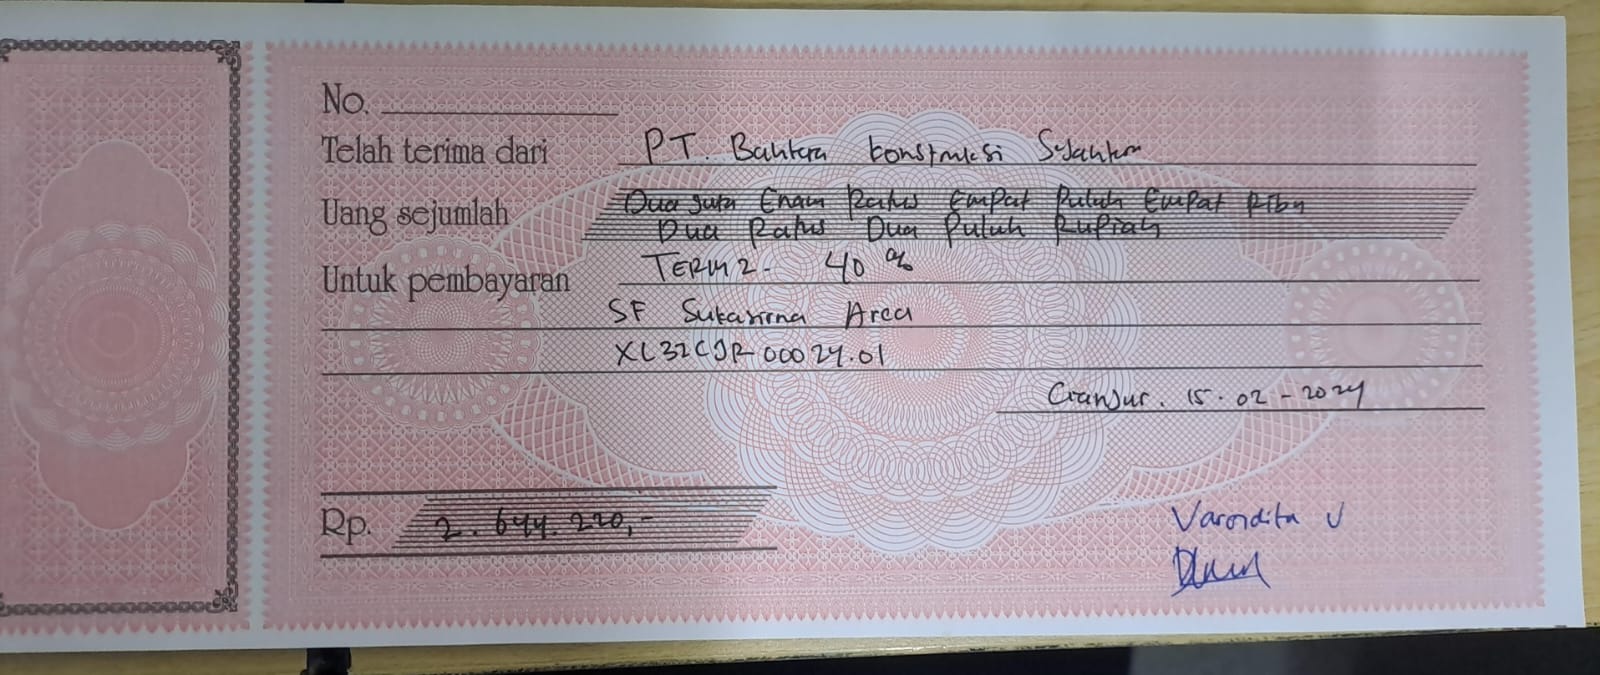 No.
Telah terima dari PT. Bahtera Konstruksi Sejahtera
Uang sejumlah Dua Juta Enam Ratus Empat Puluh Empat Ribu
Dua Ratus Dua Puluh Rupiah
Untuk pembayaran TERM 2 - 40 %
SF Sukasirna Area
XL32CJR00024.01
Cianjur. 15.02-2024
Rp. 2.644.220,-
Varondita U